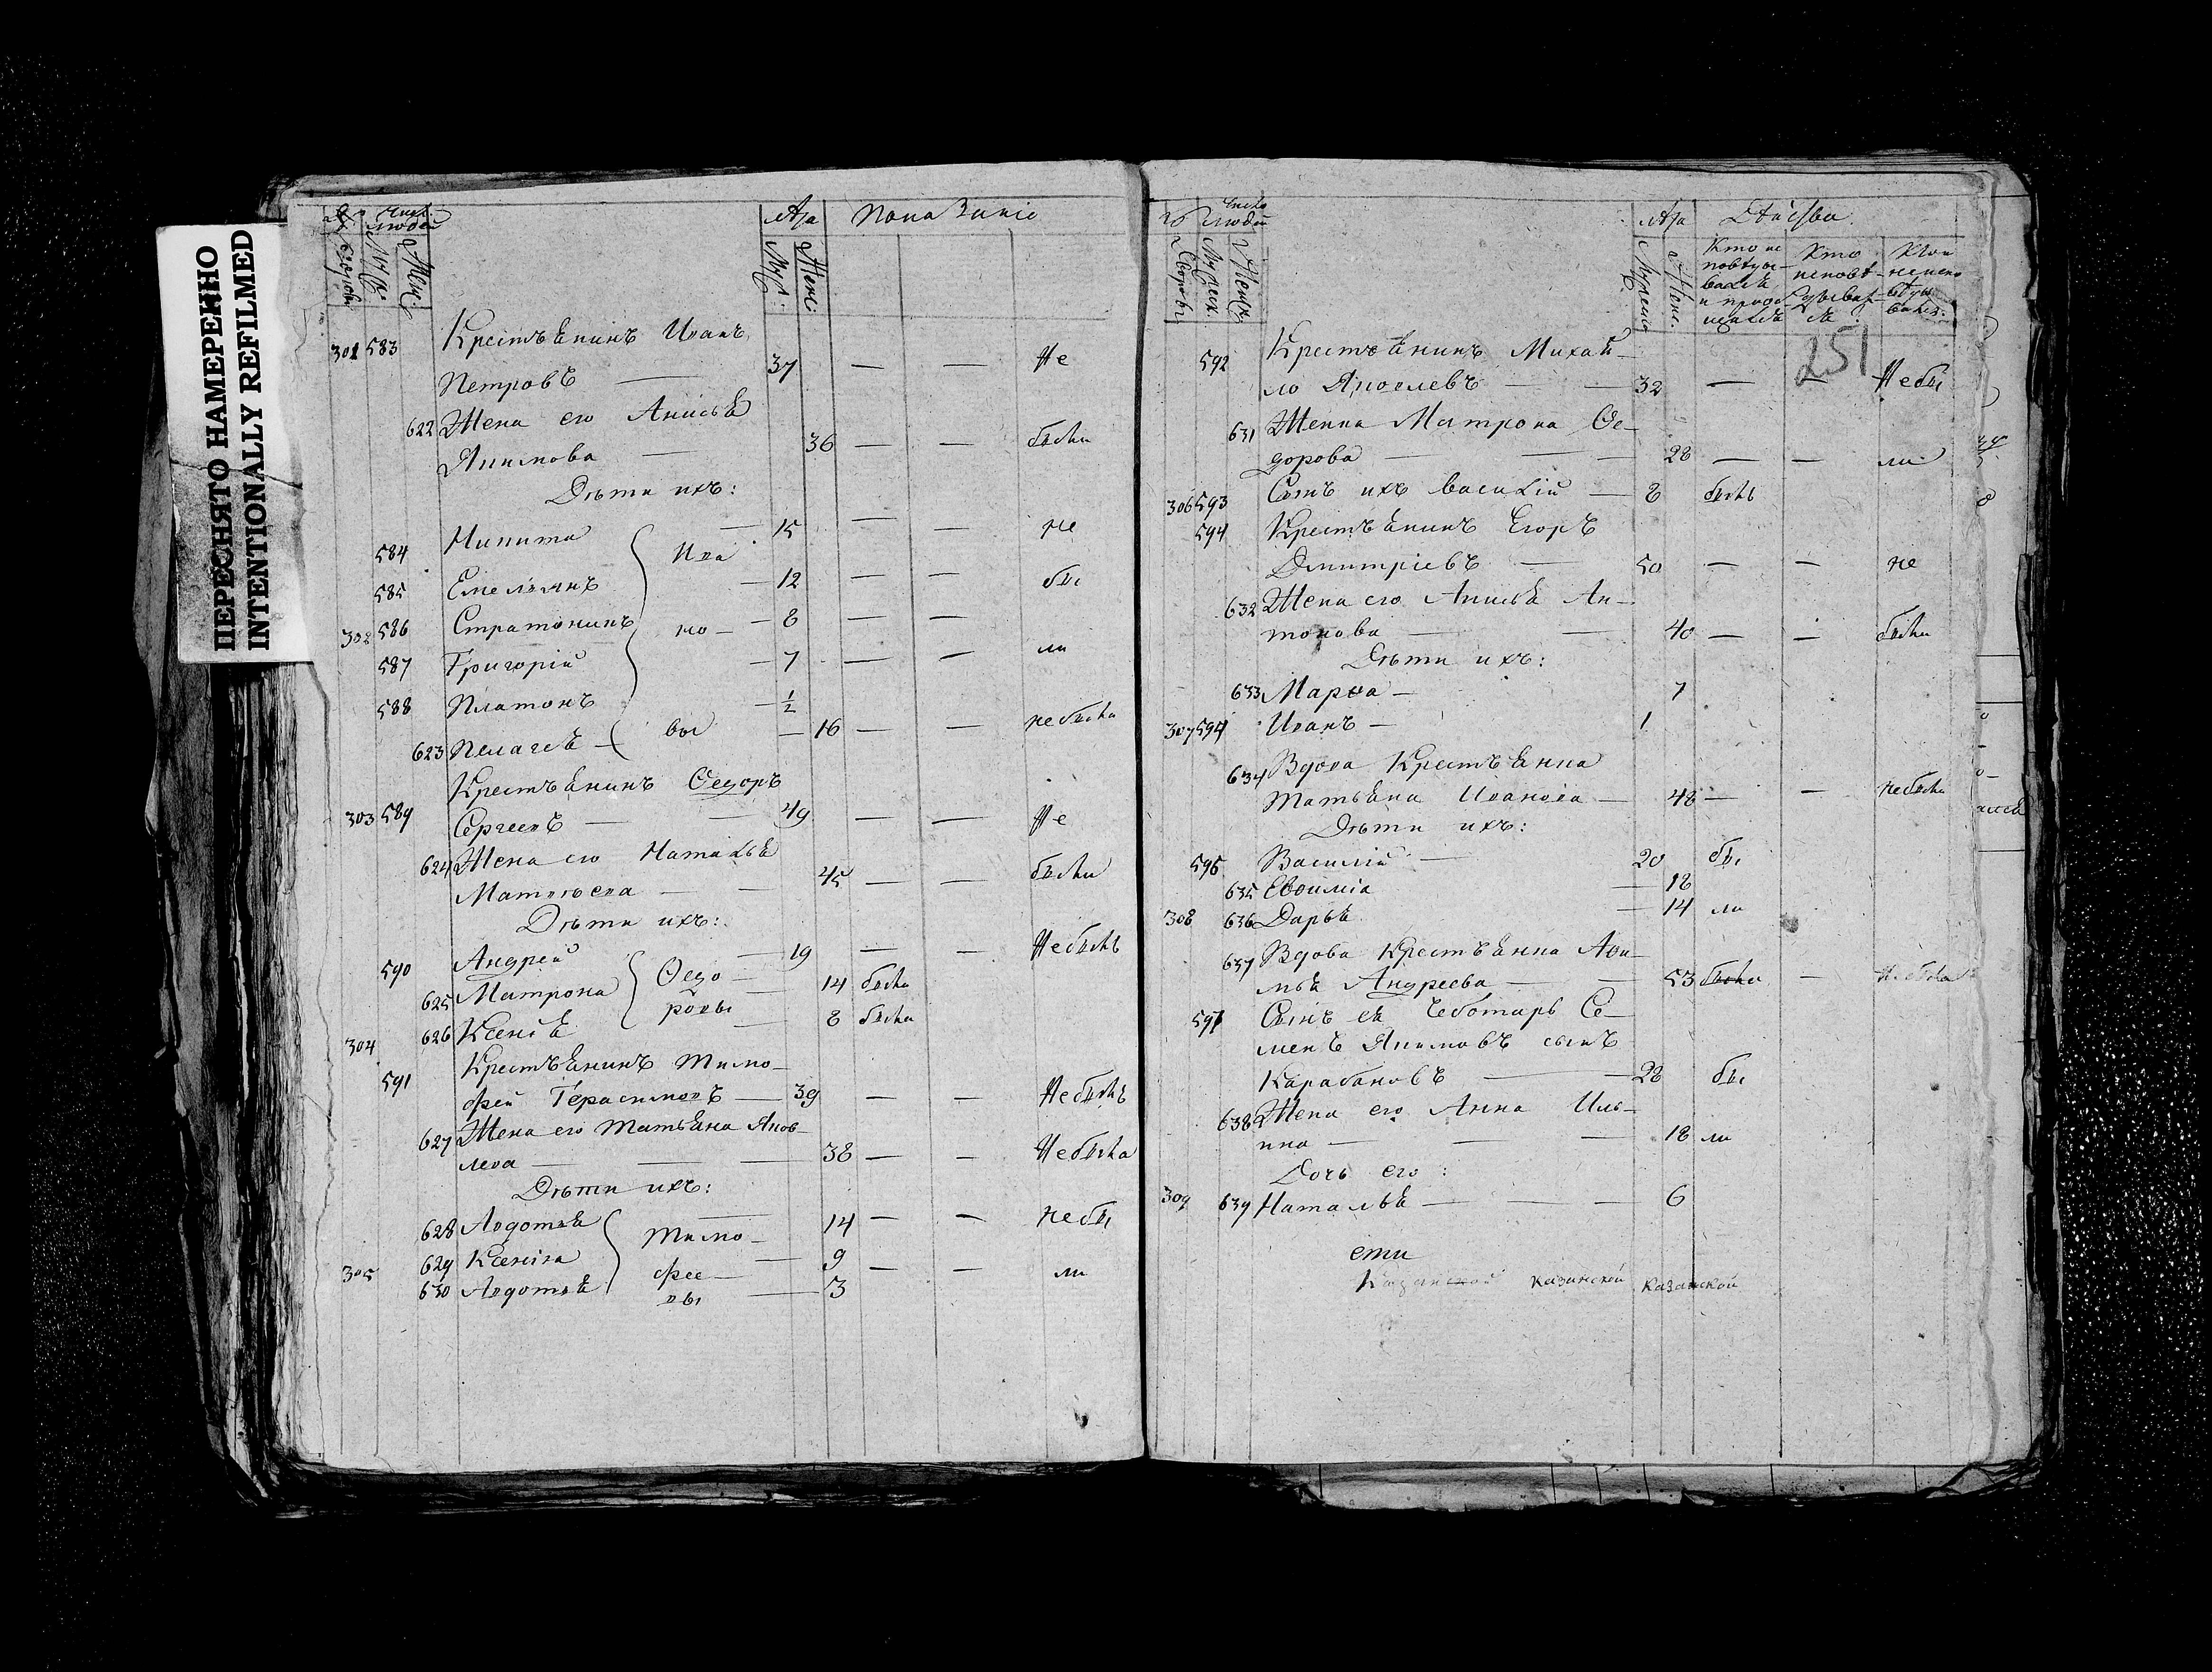 ПЕРЕСНЯТО НАМЕРЕННО
INTENTIONALLY REFILMED
людей Лѣта Показаніе
Муж. Жен. Муж. Жен.
301 583 Крестьянинъ Иванъ
Петровъ — 37 — — Не
622 Жена его Анисья
Якимова — 36 — — были
Дѣти ихъ:
584 Никита { Ива — 15 — — не
585 Емельянъ — 12 — — бы
302 586 Стратоникъ но — 8 — —
587 Григорій — 7 — — ли
588 Платонъ — ½
623 Пелагея вы — 16 — — не были
Крестьянинъ Ѳедоръ
303 589 Сергеевъ — — 49 — — Не
624 Жена его Наталья
Матвѣева — — 45 — — были
Дѣти ихъ:
590 Андрей { Ѳедо — 19 — — Не былъ
625 Матрона ровы — 14 была
626 Ксенія — 8 была
304
591 Крестьянинъ Тимо-
фей Герасимовъ — 39 — — Не былъ
627 Жена его Татьяна Яков-
лева — — — 38 — — Не была
Дѣти ихъ:
628 Авдотья { Тимо- — 14 — — не бы
629 Ксенія фее — 9 — — ли
305 630 Авдотья вы — 3
Число людей Лѣта ства
Дворовъ Мужеск. Женск. Мужеск. Женс. Кто исповѣдывался и Кто исповѣдывался Кто и не исповѣдывался
251
592 Крестьянинъ Михай-
ло Яковлевъ — — 32 — — Не бы
631 Женна Матрона Ѳе-
дорова — — 28 — — ли
306 593 Сынъ ихъ Василій — 8 былъ
594 Крестьянинъ Егоръ
Дмитріевъ — 50 — — не
632 Жена его Анисья Ан-
тонова — — 40 — — были
Дѣти ихъ:
633 Марѳа — 7
307 594 Иванъ — 1
634 Вдова Крестьянка
Татьяна Иванова — 48 — — не была
Дѣти ихъ:
595 Василій — 20 бы
635 Евѳимія — 18
308 636 Дарья — 14 ли
637 Вдова Крестьянка
Андреева — — 53 была — Не была
597 Сынъ ея Чеботарь Се-
менъ Якимовъ сынъ
Карабановъ — 28 бы
638 Жена его Анна Иль-
ина — — — 18 ли
Дочь его:
309 639 Наталья — — — 6
ети
Казанской казанской казанской